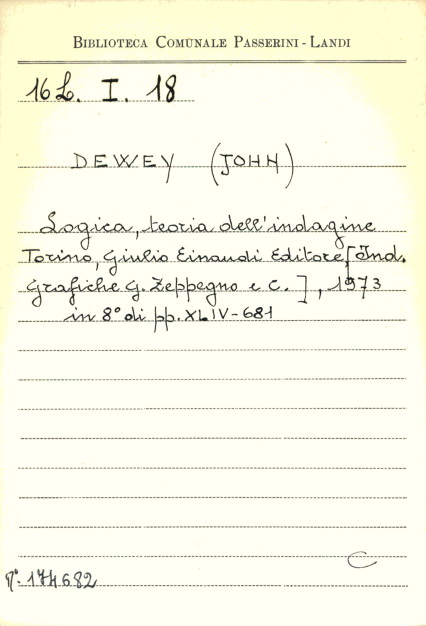 BIBLIOTECA COMUNALE PASSERINI - LANDI
16 L. I. 18
DEWEY (JOHN)
Logica, teoria dell'indagine
Torino, Giulio Einaudi Editore [Ind.
Grafiche G. Zeppegno e C.], 1973
in 8° di pp. XLIV-681
C
n°. 174682